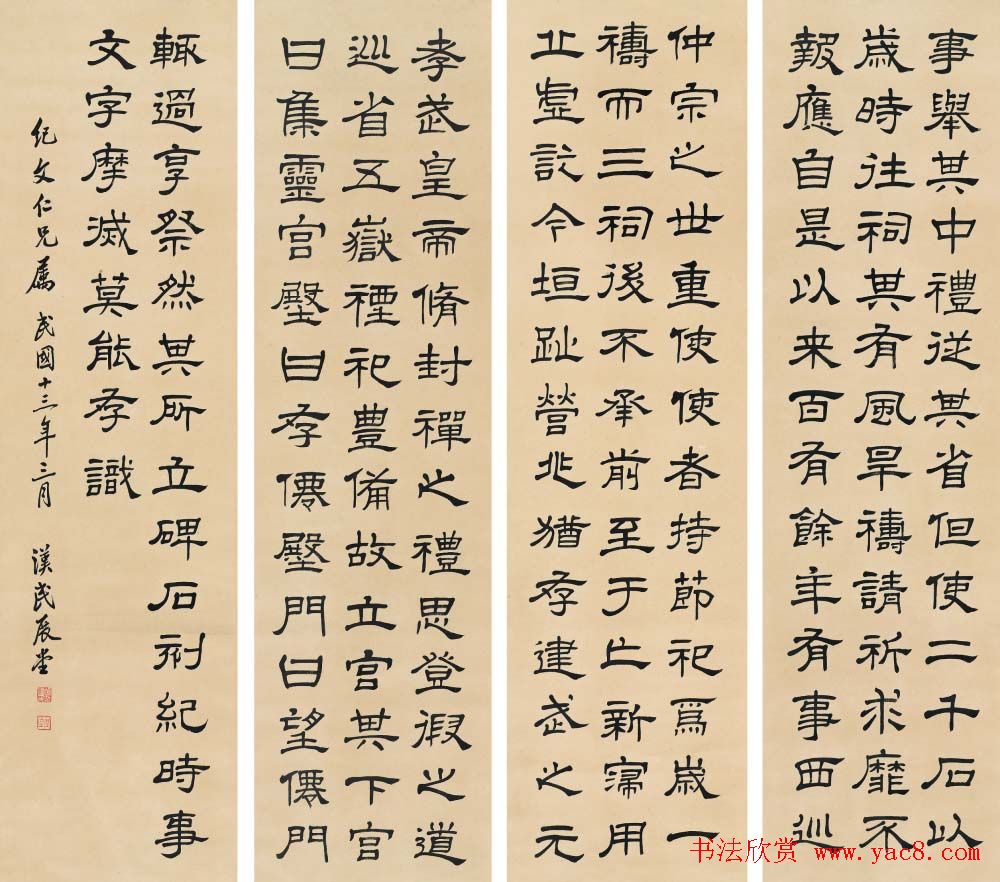 事舉其中禮從其省但使二千石以
歲時往祠其有風旱禱請祈求靡不
報應自是以來百有餘年有事西巡
仲宗之世重使使者持節祀焉歲一
禱而三祠後不承前至于亡新寖用
丘虛訖今垣趾營兆猶存建武之元
孝武皇帝脩封禪之禮思登假之道
巡省五嶽禋祀豐備故立宮其下宮
曰集靈宮壂曰存僊壂門曰望僊門
輒過享祭然其所立碑石刻紀時事
文字摩滅莫能存識
紀文仁兄屬 民國十三年三月 漢民展堂
书法欣赏 www.yac8.com